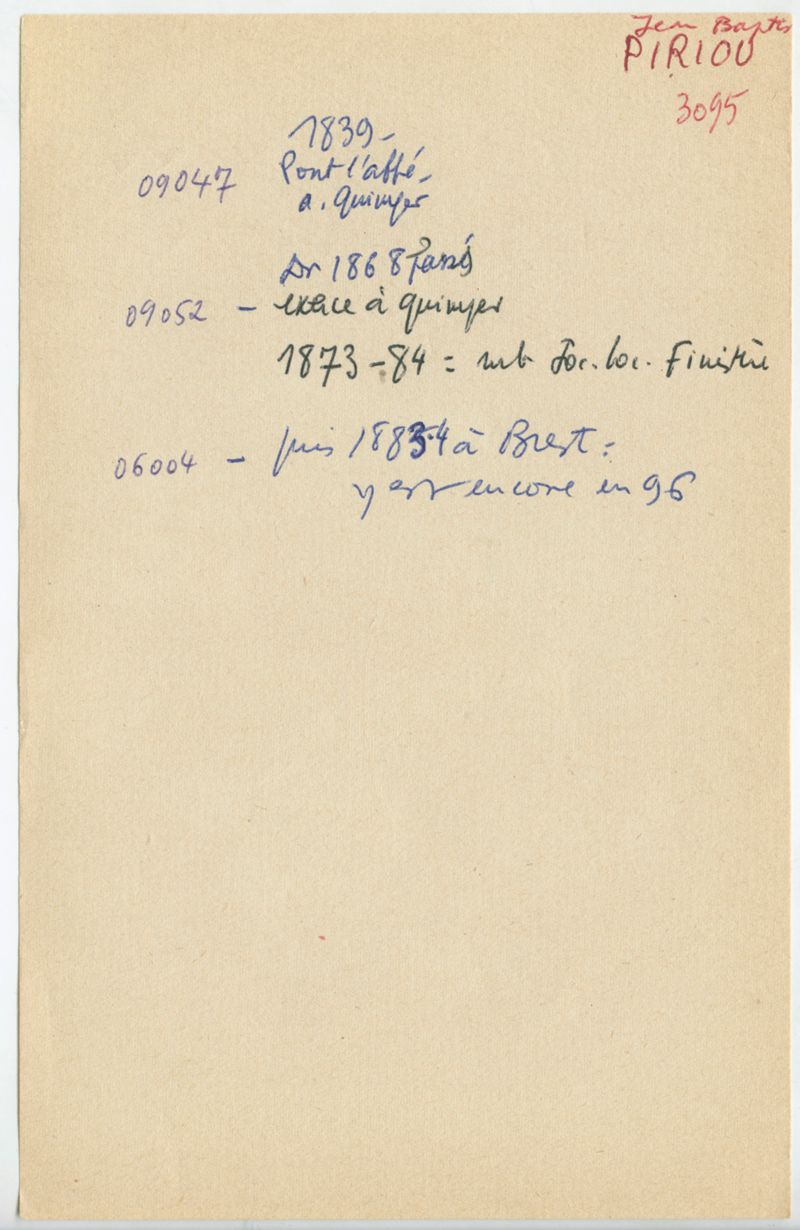 Jean Baptis
PIRIOU
3095
1839 -
09047 Pont l'abbé -
a. Quimper
Dr 1868 Paris
09052 - exerce à Quimper
1873 - 84 = mb Soc. loc. Finistère
06004 - puis 1884 à Brest :
y est encore en 96